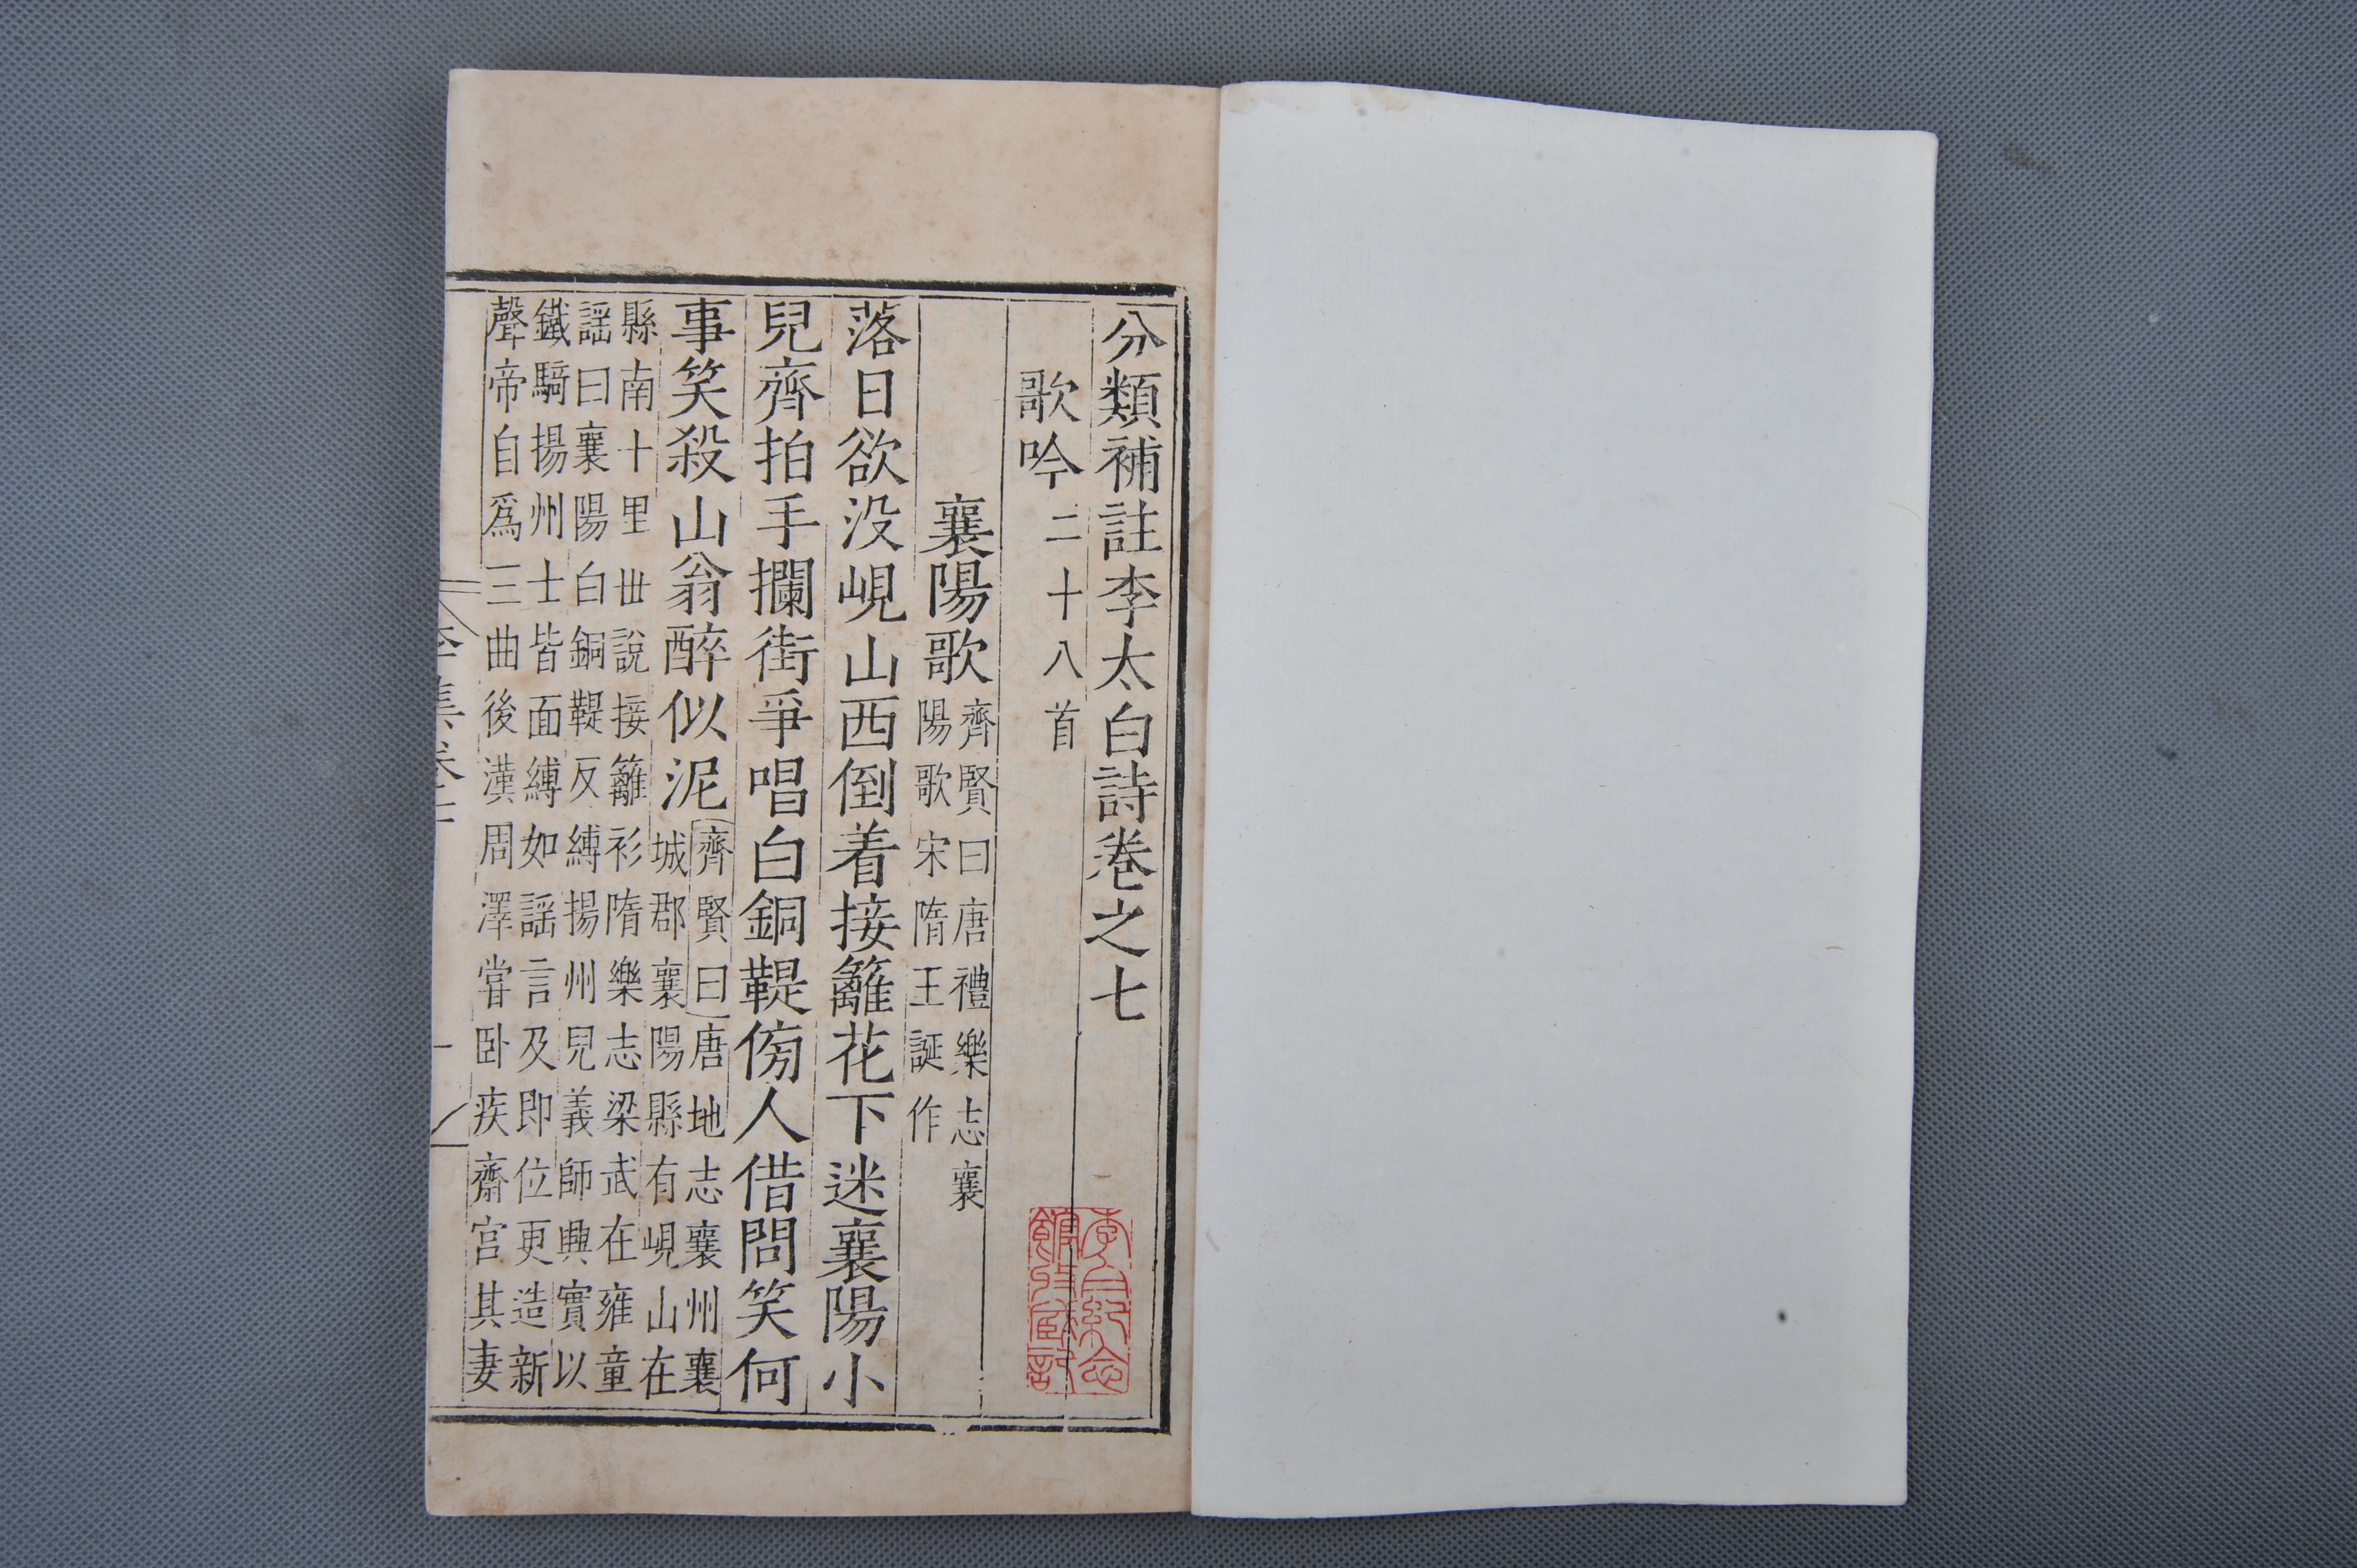 分類補註李太白詩卷之七
歌吟二十八首
襄陽歌齊賢曰唐禮樂志襄
陽歌宋隋王誕作
落日欲没峴山西倒着接籬花下迷襄陽小
兒齊拍手攔街爭唱白銅鞮傍人借問笑何
事笑殺山翁醉似泥齊賢曰唐地志襄州襄
城郡襄陽縣有峴山在
縣南十里丗說接籬衫隋樂志梁武在雍童
謡曰襄陽白銅鞮反縛揚州兒義師興實以
鐵騎揚州士皆面縛如謡言及即位更造新
聲帝自爲三曲後漢周澤甞卧疾齋宫其妻
李白紀念
館收藏記